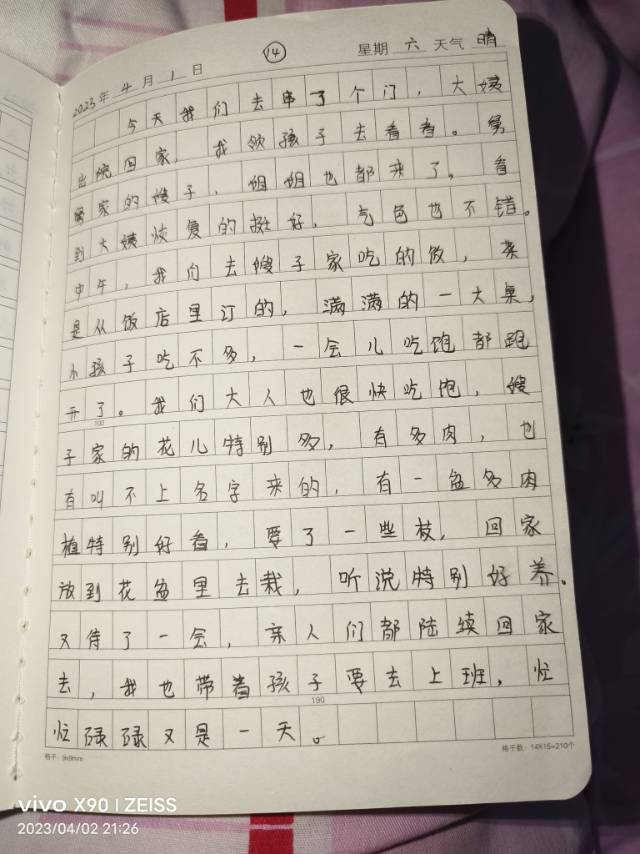 14
2023年 4 月 1 日 星期 六 天气 晴
今天我们去串了个门，大姨
出院回家，我领孩子去看看。舅
舅家的嫂子，姐姐也都来了。看
到大姨恢复的挺好，气色也不错。
中午，我们去嫂子家吃的饭，菜
是从饭店里订的，满满的一大桌，
小孩子吃不多，一会儿吃饱都跑
开了。我们大人也很快吃饱，嫂
100
子家的花儿特别多，有多肉，也
有叫不上名字来的，有一盆多肉
植特别好看，要了一些枝，回家
放到花盆里去栽，听说特别好养。
又待了一会，亲人们都陆续回家
去，我也带着孩子要去上班，忙
190
忙碌碌又是一天。
格子：9x9mm 格子数：14X15=210个
vivo X90 | ZEISS
2023/04/02 21:26